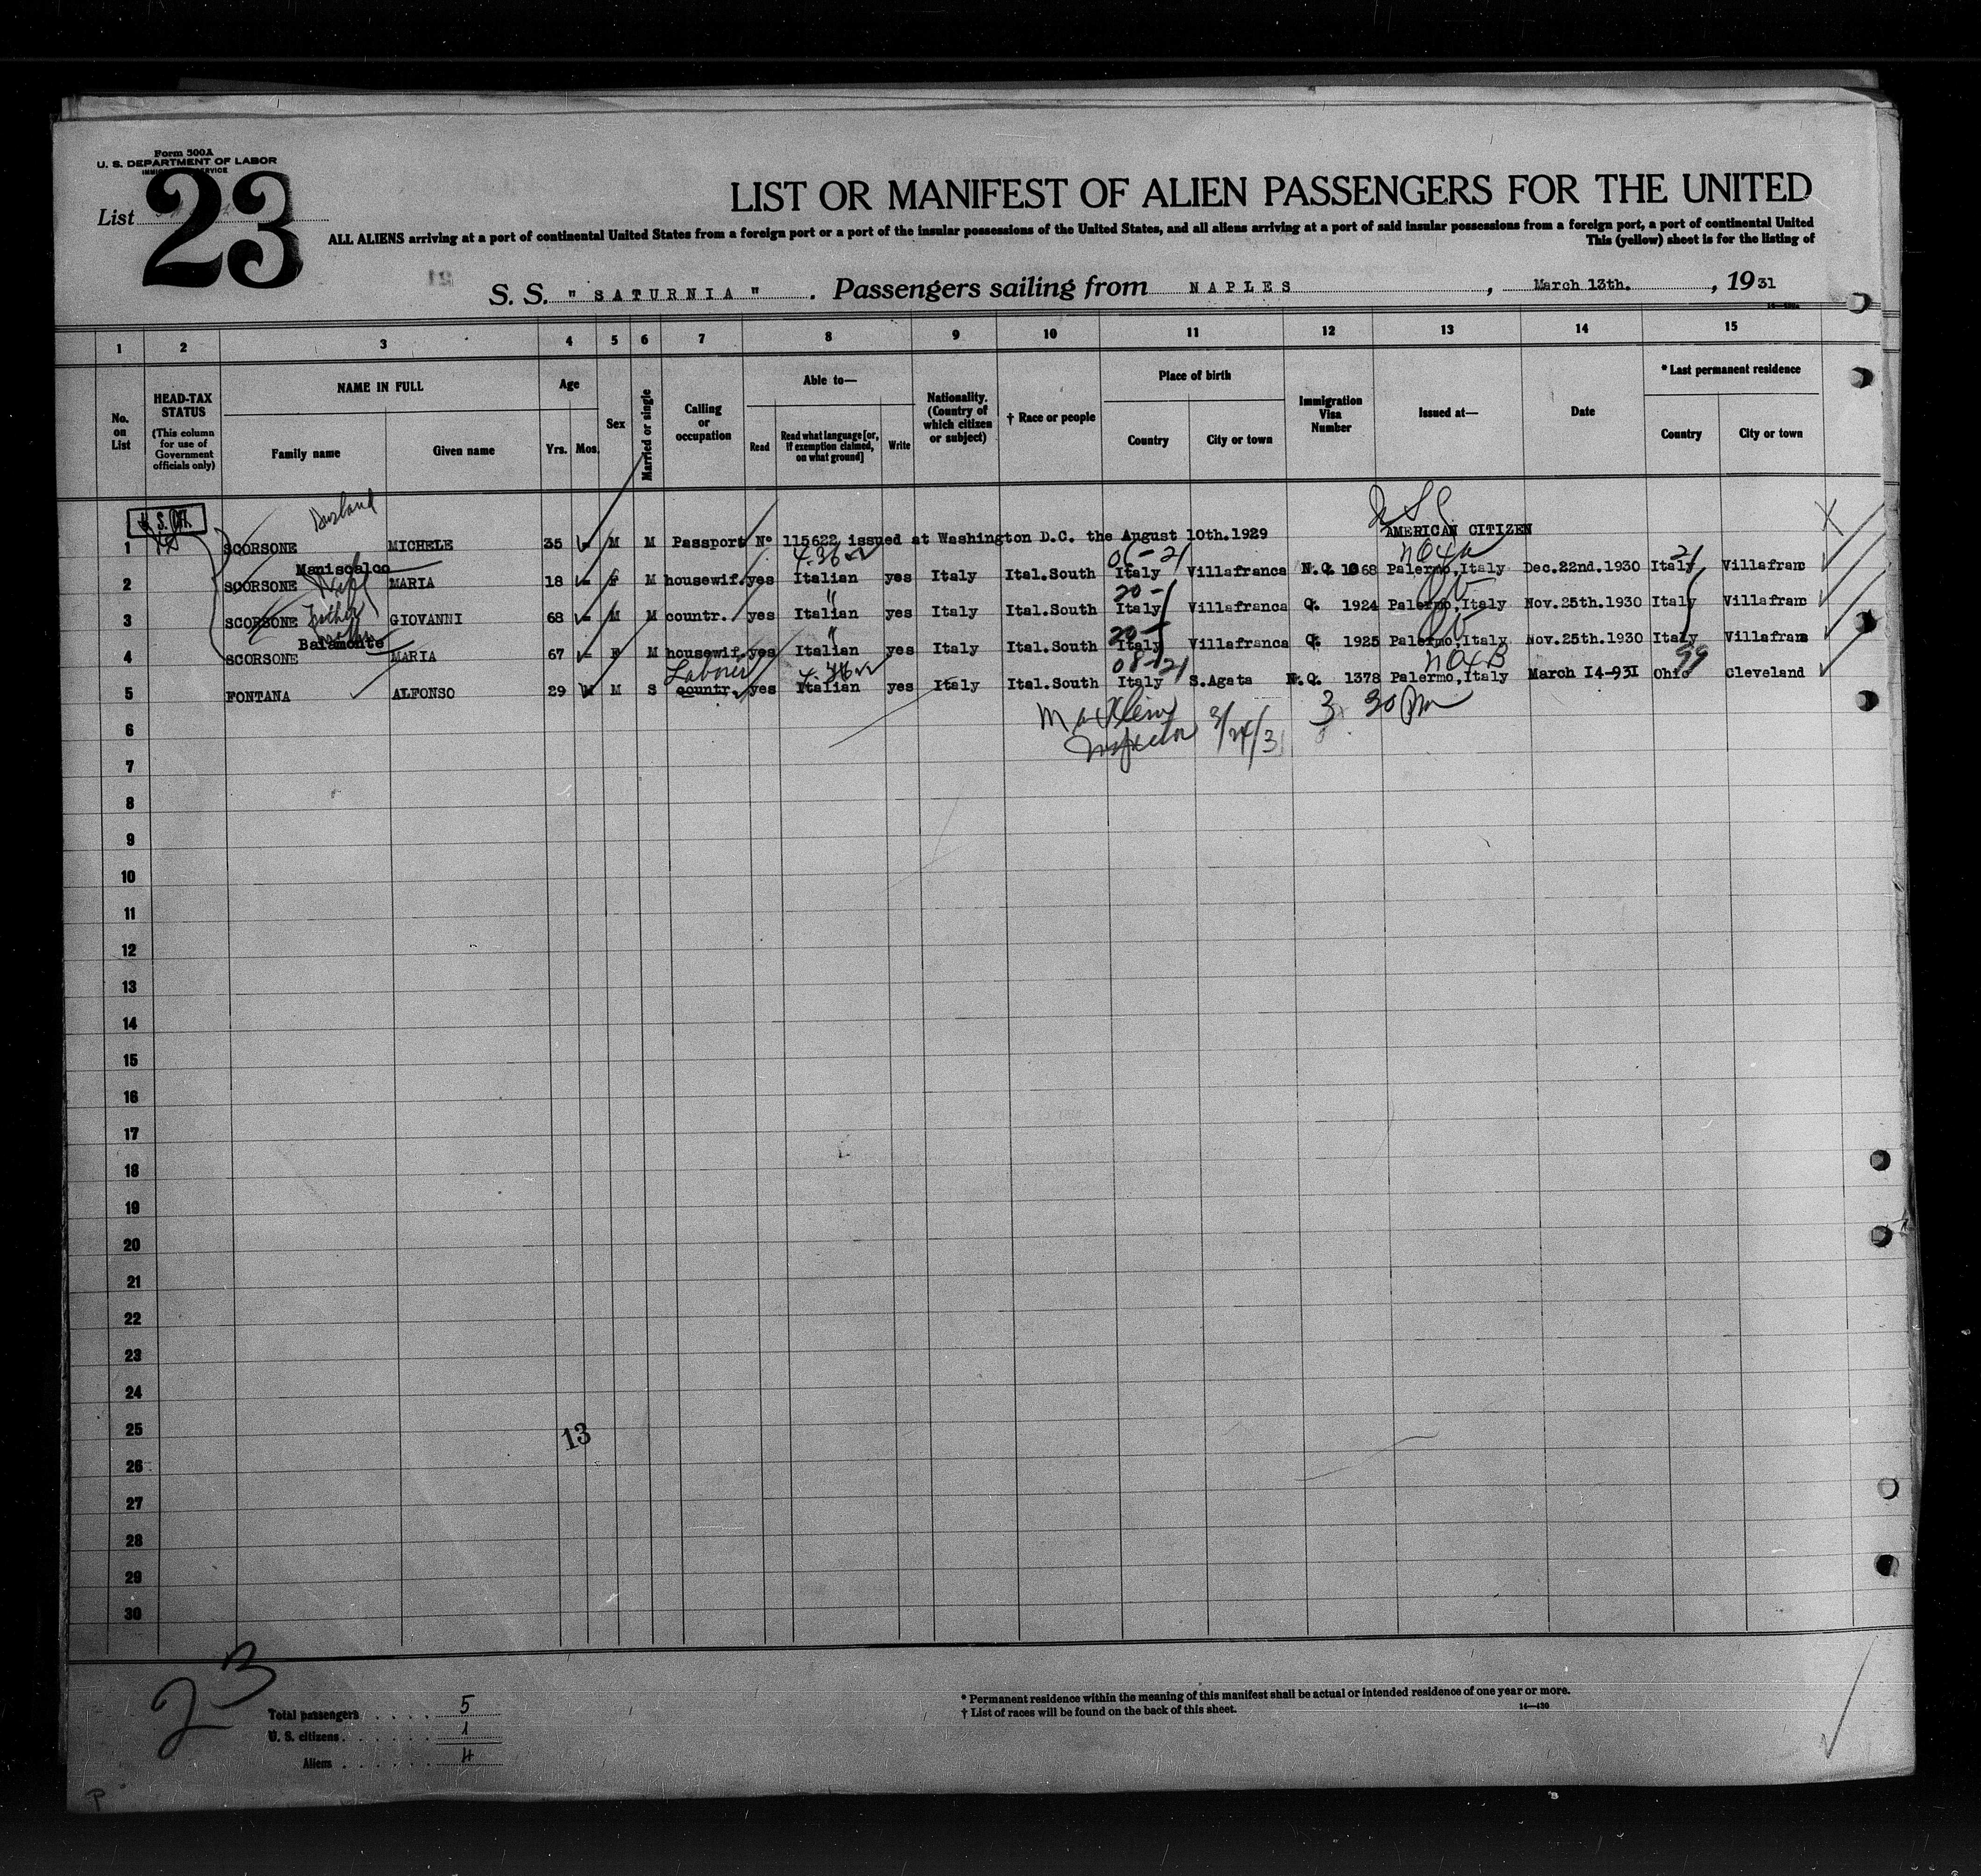 Form 500A
U. S. DEPARTMENT OF LABOR
List 23
LIST OR MANIFEST OF ALIEN PASSENGERS FOR THE UNITED
ALL ALIENS arriving at a port of continental United States from a foreign port or a port of the insular possessions of the United States, and all aliens arriving at a port of said insular possessions from a foreign port, a port of continental United
This (yellow) sheet is for the listing of
S. S. "SATURNIA". Passengers sailing from NAPLES, March 13th., 1931
1 2 3 4 5 6 7 8 9 10 11 12 13 14 15
No. on List
HEAD-TAX STATUS (This column for use of Government officials only)
NAME IN FULL
Family name Given name
Age
Yrs. Mos.
Sex
Married or single
Calling or occupation
Able to—
Read Read what language [or, if exemption claimed, on what ground] Write
Nationality. (Country of which citizen or subject)
† Race or people
Place of birth
Country City or town
Immigration Visa Number
Issued at—
Date
* Last permanent residence
Country City or town
Husband
1 SCORSONE MICHELE 35 M M Passport No 115622 issued at Washington D.C. the August 10th.1929 U S C AMERICAN CITIZEN
Maniscalco
2 SCORSONE Wife MARIA 18 F M housewif. yes Italian yes Italy Ital.South Italy Villafranca N.Q. 1068 Palermo,Italy Dec.22nd.1930 Italy Villafranc
3 SCORSONE Father GIOVANNI 68 M M countr. yes " yes Italy Ital.South Italy Villafranca Q. 1924 Palermo,Italy Nov.25th.1930 Italy Villafranc
Baiamonte
4 SCORSONE MARIA 67 F M housewif. yes Italian yes Italy Ital.South Italy Villafranca Q. 1925 Palermo,Italy Nov.25th.1930 Italy Villafrans
Laborer
5 FONTANA ALFONSO 29 M S countr. yes Italian yes Italy Ital.South Italy S.Agata N.Q. 1378 Palermo,Italy March 14-931 Ohio 99 Cleveland
6 Inspector 3/24/31 3 30 Pm
7
8
9
10
11
12
13
14
15
16
17
18
19
20
21
22
23
24
25 13
26
27
28
29
30
23
Total passengers . . . . 5
U. S. citizens . . . . . . 1
Aliens . . . . . . 4
* Permanent residence within the meaning of this manifest shall be actual or intended residence of one year or more.
† List of races will be found on the back of this sheet.
14—430